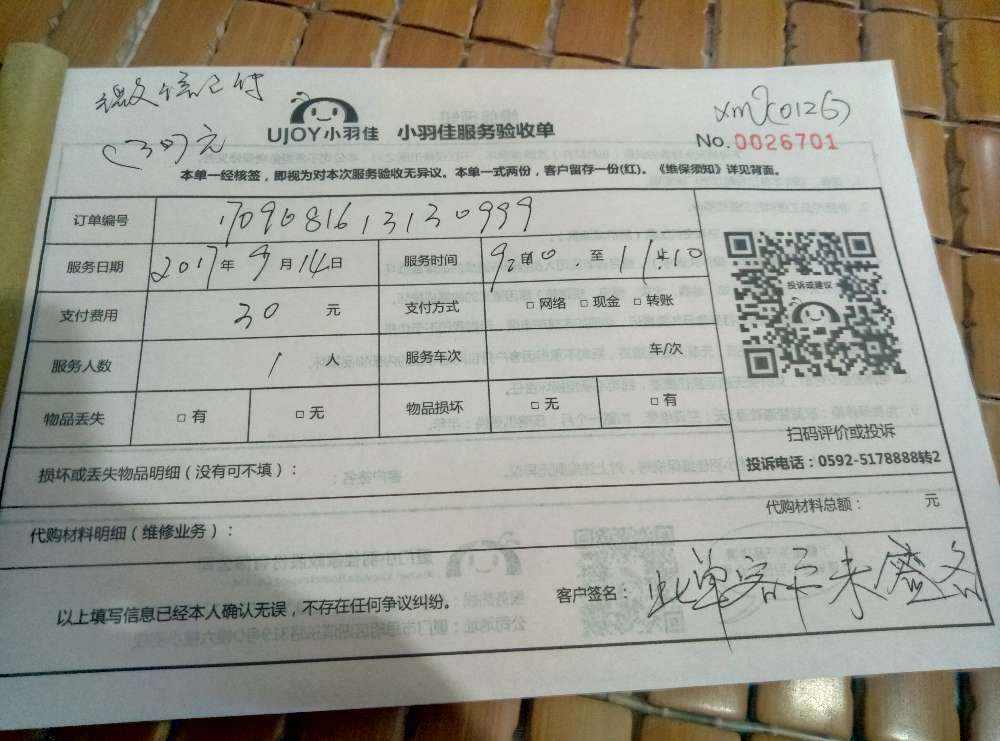 微信已付
(30)元
xm2(0126)
UJOY小羽佳 小羽佳服务验收单
No.0026701
本单一经核签，即视为对本次服务验收无异议。本单一式两份，客户留存一份(红)。《维保须知》详见背面。
订单编号 170908161313130999
服务日期 2017年9月14日 服务时间 9时10 至 11时10
支付费用 30 元 支付方式 □网络 □现金 □转账
服务人数 1 人 服务车次 车/次
物品丢失 □有 □无 物品损坏 □无 □有
投诉或建议
扫码评价或投诉
投诉电话：0592-5178888转2
损坏或丢失物品明细（没有可不填）：
代购材料明细（维修业务）： 代购材料总额： 元
以上填写信息已经本人确认无误，不存在任何争议纠纷。 客户签名： 此单客户未签名